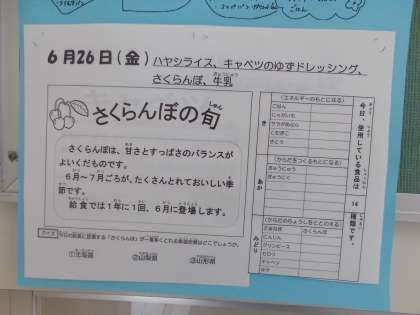 6月26日(金) ハヤシライス、キャベツのゆずドレッシング、
さくらんぼ、牛乳
さくらんぼの旬
さくらんぼは、甘さとすっぱさのバランスが
よいくだものです。
6月～7月ごろが、たくさんとれておいしい季
節です。
給食では1年に1回、6月に登場します。
クイズ
①北海道 ②山梨県 ③山形県
今日、使用している食品は
14
種類です。
き
(エネルギーのもとになる)
ごはん
じゃがいも
サラダあぶら
こむぎこ
さとう
あか
(からだをつくるもとになる)
ぎゅうにゅう
ぎゅうにく
みどり
(からだのちょうしをととのえる)
たまねぎ さくらんぼ
にんじん
グリンピース
セロリ
キャベツ
ゆず